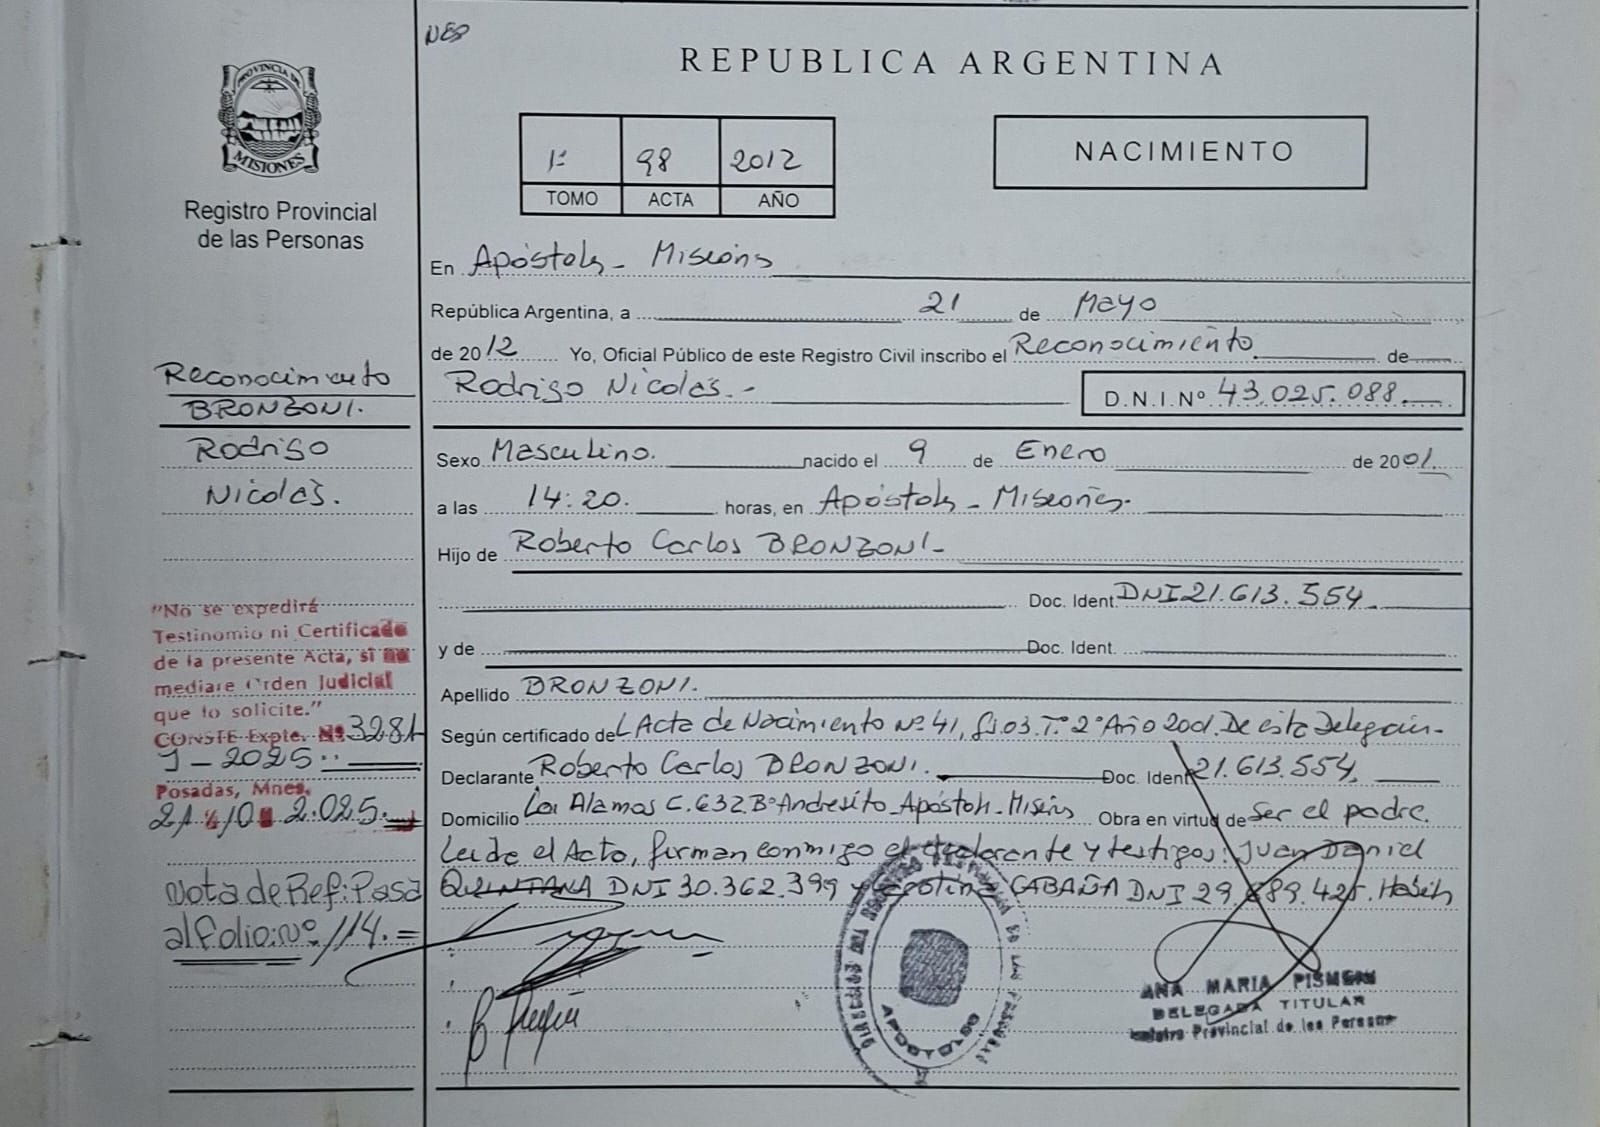 NEP
REPUBLICA ARGENTINA
PROVINCIA DE
MISIONES
Registro Provincial
de las Personas
1º 98 2012
TOMO ACTA AÑO
NACIMIENTO
En Apóstoles - Misiones
República Argentina, a 21 de Mayo
de 2012 Yo, Oficial Público de este Registro Civil inscribo el Reconocimiento de
Rodrigo Nicolás.- D.N.I.Nº 43.025.088.
Sexo Masculino. nacido el 9 de Enero de 2001.
a las 14:20. horas, en Apóstoles - Misiones.
Hijo de Roberto Carlos BRONZONI-
Doc. Ident. DNI 21.613.554
y de Doc. Ident.
Apellido BRONZONI.
Según certificado del Acta de Nacimiento Nº 41, fº 03. Tº 2º Año 2001. De esta Delegación-
Declarante Roberto Carlos BRONZONI. Doc. Ident. 21.613.554
Domicilio Los Alamos C. 632 Bº Andresito - Apóstoles - Misiones Obra en virtud de Ser el padre.
Leída el Acta, firman conmigo el declarante y testigos: Juan Daniel
QUINTANA DNI 30.362.399 y CABAÑA DNI
Reconocimiento
BRONZONI.
Rodrigo
Nicolás.
"No se expedirá
Testinomio ni Certificado
de la presente Acta, si no
mediare Orden Judicial
que lo solicite."
CONSTE Expte. Nº 3281
J - 2025
Posadas, Mnes.
21/10/2.025.
Nota de Ref: Pasa
al folio: nº 114.=
APOSTOLES
ANA MARIA
DELEGADA TITULAR
Registro Provincial de las Personas